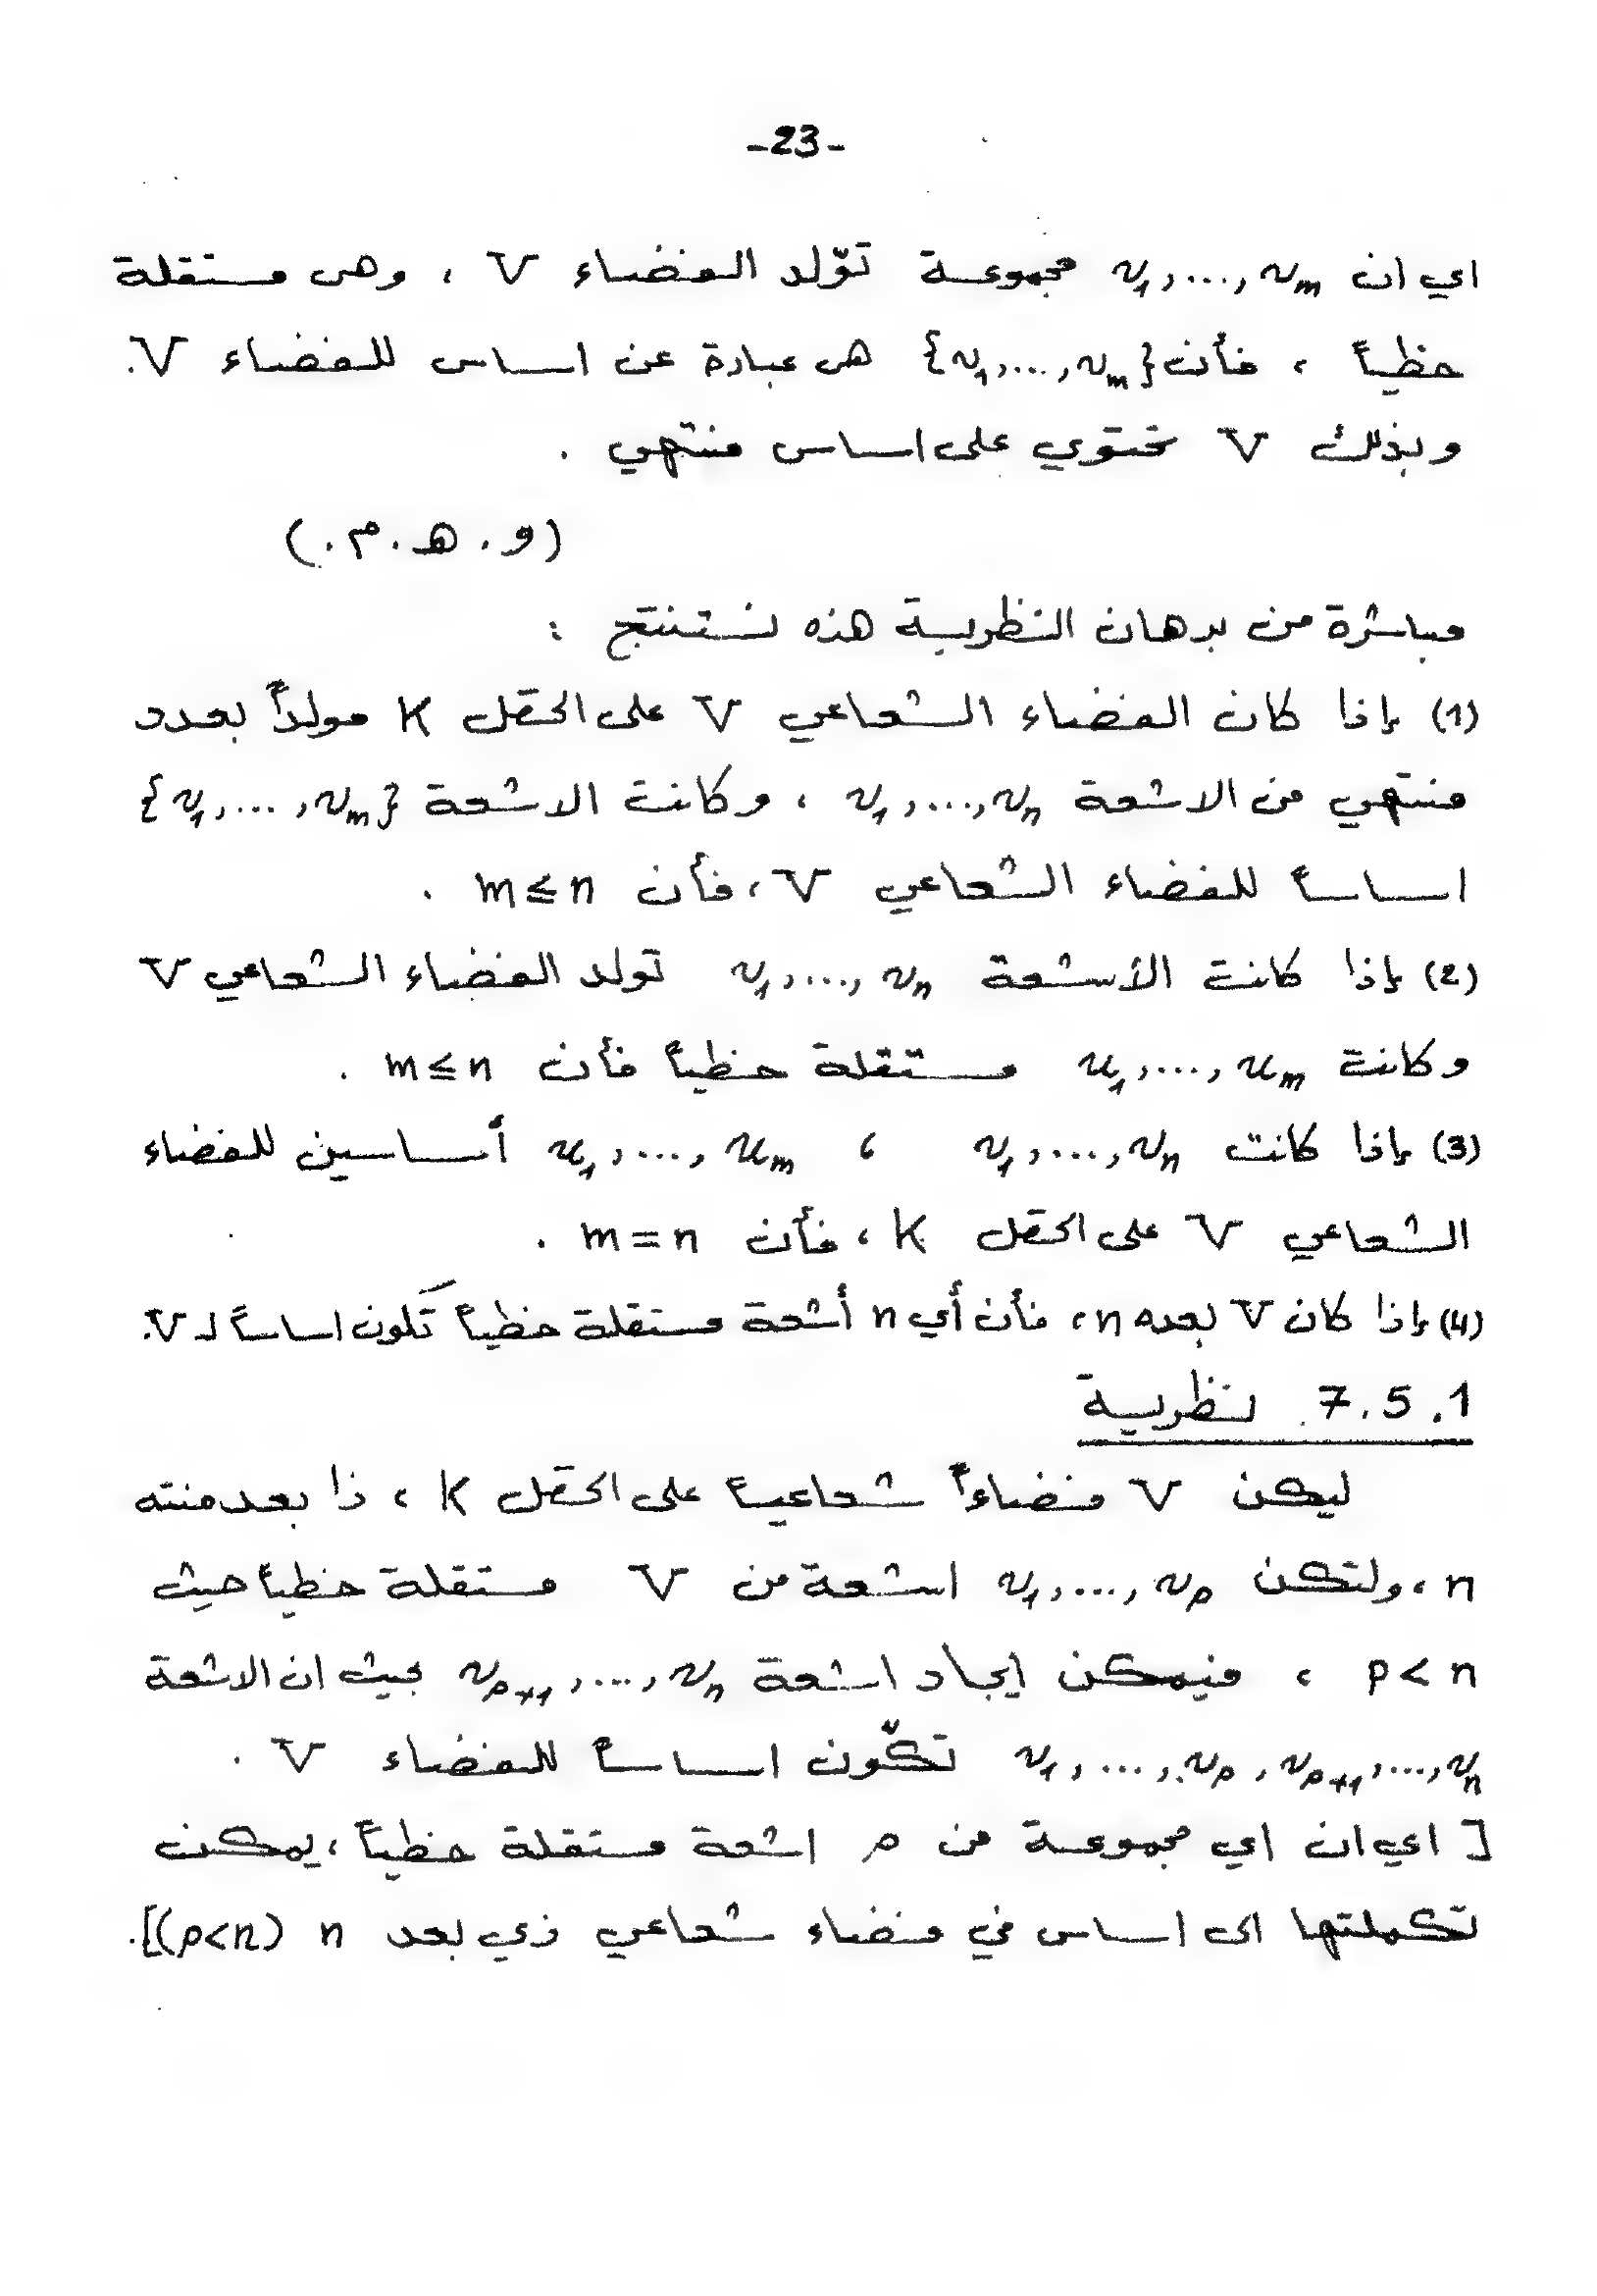 -23-
اي ان v₁,...,vₘ مجموعة تولّد الفضاء V ، وهي مستقلة
خطياً ، فأن {v₁,...,vₘ} هي عبارة عن اساس للفضاء V.
وبذلك V تحتوي على اساس منتهي .
(و . هـ . م .)
مباشرة من برهان النظرية هذه نستنتج :
(1) إذا كان الفضاء الشعاعي V على الحقل K مولداً بعدد
منتهي من الاشعة v₁,...,vₙ ، وكانت الاشعة {v₁,...,vₘ}
اساساً للفضاء الشعاعي V ، فأن m ≤ n .
(2) إذا كانت الأشعة v₁,...,vₙ تولد الفضاء الشعاعي V
وكانت u₁,...,uₘ مستقلة خطياً فأن m ≤ n .
(3) إذا كانت v₁,...,vₙ ، u₁,...,uₘ أساسين للفضاء
الشعاعي V على الحقل K ، فأن m = n .
(4) إذا كان V بعده n ، فأن أي n أشعة مستقلة خطياً تكون اساساً لـ V.
7.5.1. نظرية
ليكن V فضاءاً شعاعياً على الحقل K ، ذا بعد منته
n ، ولتكن v₁,...,vₚ اشعة من V مستقلة خطياً حيث
p < n ، فيمكن إيجاد اشعة vₚ₊₁,...,vₙ بحيث ان الاشعة
v₁,...,vₚ,vₚ₊₁,...,vₙ تكوّن اساساً للفضاء V .
[ اي ان اي مجموعة من p اشعة مستقلة خطياً ، يمكن
تكملتها الى اساس في فضاء شعاعي ذي بعد n (p<n)].